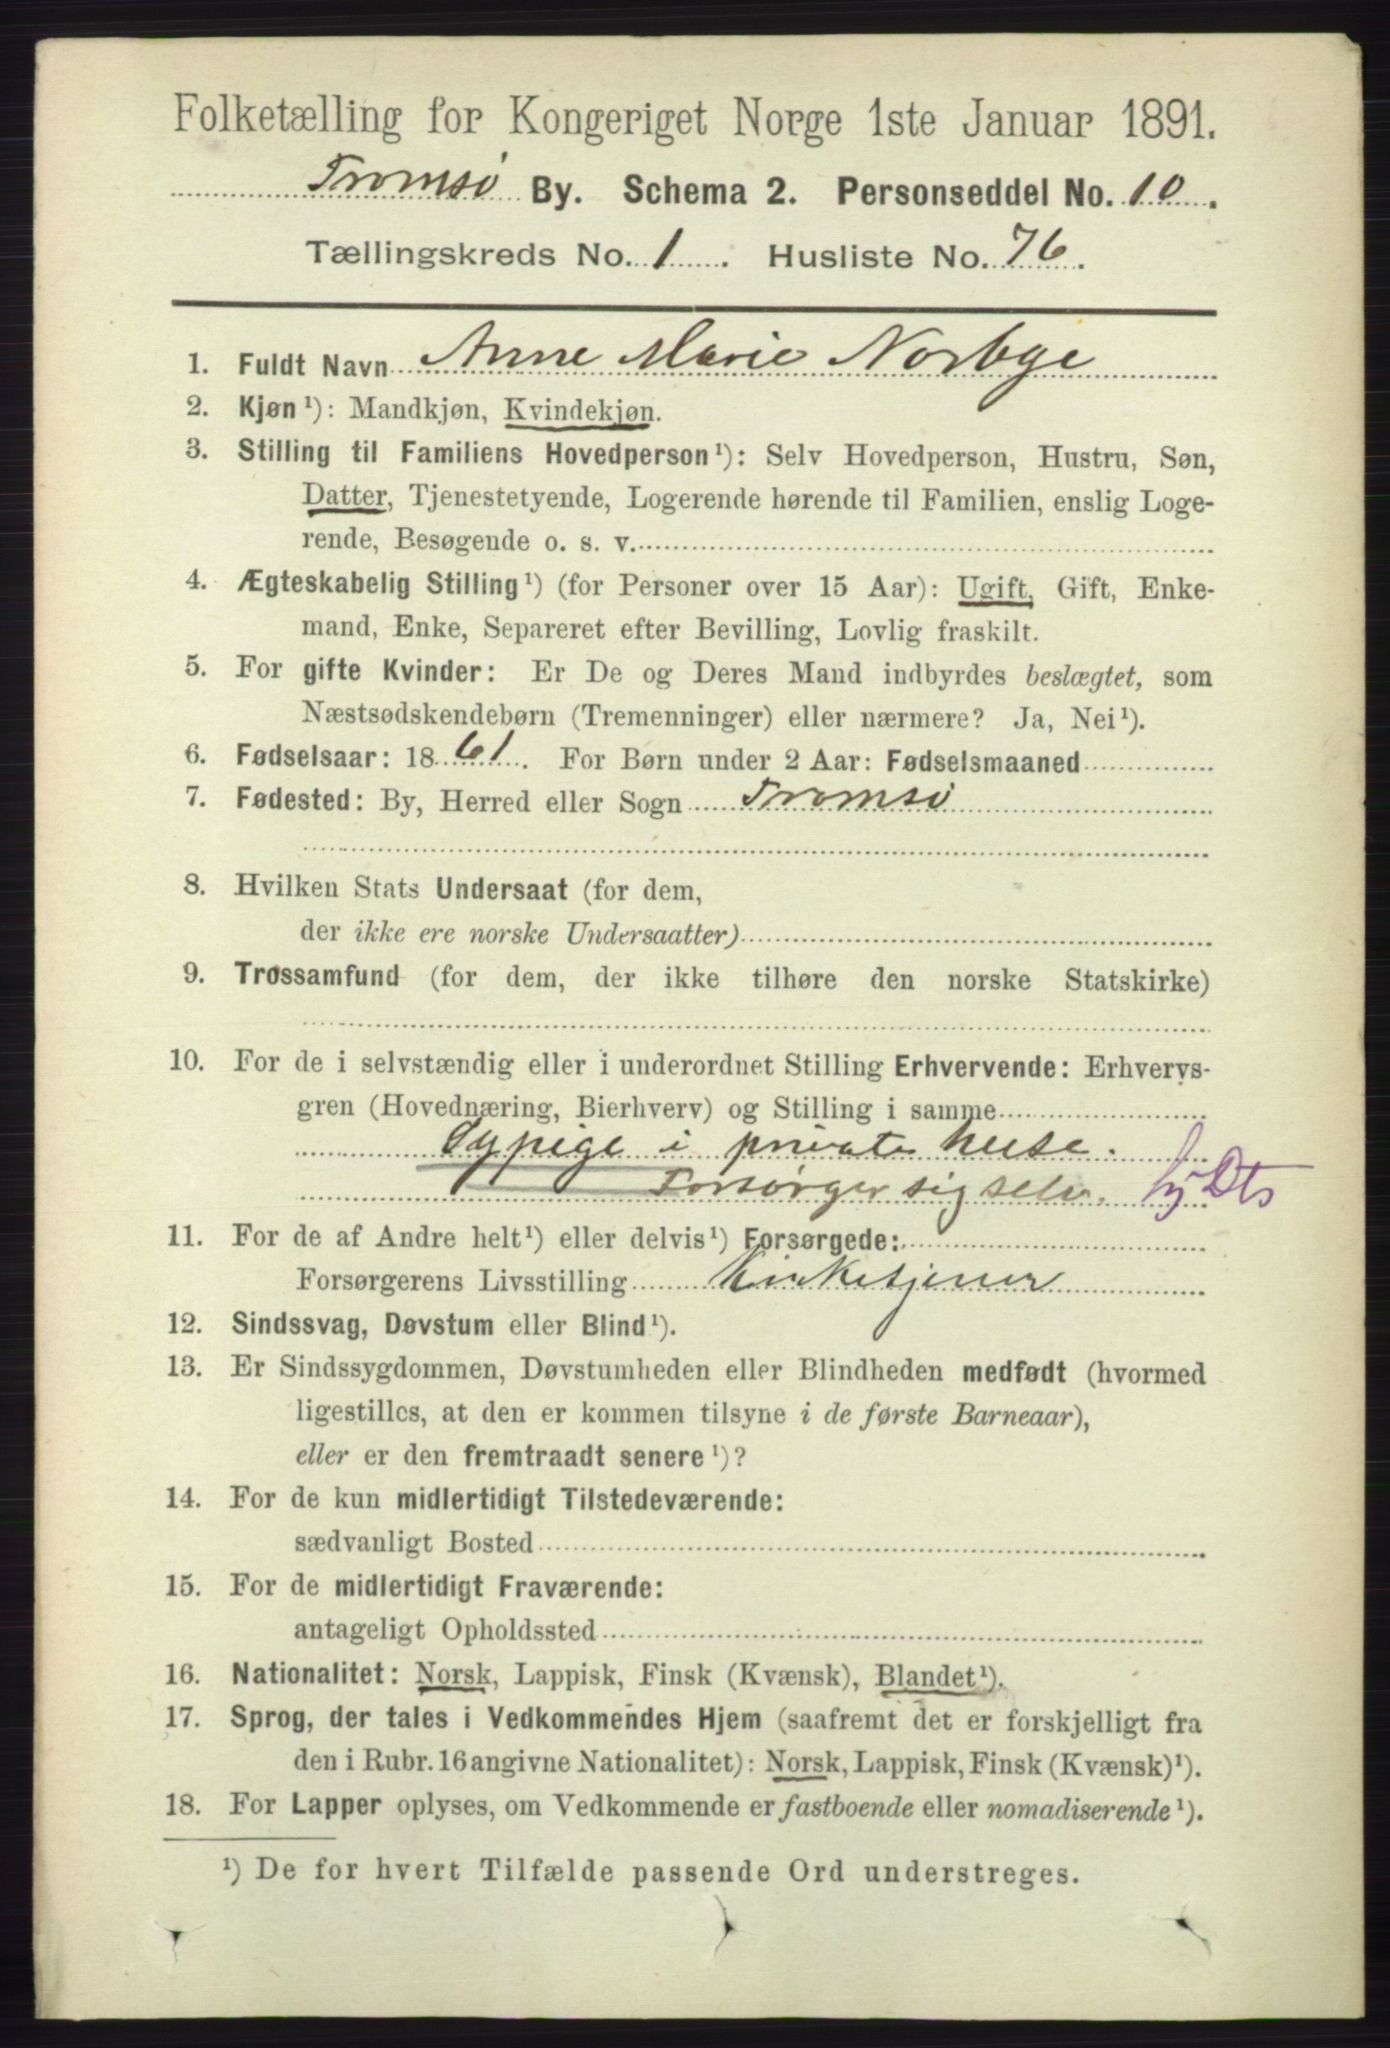 Folketælling for Kongeriget Norge 1ste Januar 1891.
Tromsø By. Schema 2. Personseddel No. 10.
Tællingskreds No. 1. Husliste No. 76.
1. Fuldt Navn Anne Marie Norbye
2. Kjøn ¹): Mandkjøn, Kvindekjøn.
3. Stilling til Familiens Hovedperson ¹): Selv Hovedperson, Hustru, Søn,
Datter, Tjenestetyende, Logerende hørende til Familien, enslig Loge-
rende, Besøgende o. s. v.
4. Ægteskabelig Stilling ¹) (for Personer over 15 Aar): Ugift, Gift, Enke-
mand, Enke, Separeret efter Bevilling, Lovlig fraskilt.
5. For gifte Kvinder: Er De og Deres Mand indbyrdes beslægtet, som
Næstsødskendebørn (Tremenninger) eller nærmere? Ja, Nei ¹).
6. Fødselsaar: 1861. For Børn under 2 Aar: Fødselsmaaned
7. Fødested: By, Herred eller Sogn Tromsø
8. Hvilken Stats Undersaat (for dem,
der ikke ere norske Undersaatter)
9. Trossamfund (for dem, der ikke tilhøre den norske Statskirke)
10. For de i selvstændig eller i underordnet Stilling Erhvervende: Erhvervs-
gren (Hovednæring, Bierhverv) og Stilling i samme
Sypige i private huse.
Forsørger sig selv.
11. For de af Andre helt ¹) eller delvis ¹) Forsørgede:
Forsørgerens Livsstilling Kirketjener
12. Sindssvag, Døvstum eller Blind ¹).
13. Er Sindssygdommen, Døvstumheden eller Blindheden medfødt (hvormed
ligestilles, at den er kommen tilsyne i de første Barneaar),
eller er den fremtraadt senere ¹)?
14. For de kun midlertidigt Tilstedeværende:
sædvanligt Bosted
15. For de midlertidigt Fraværende:
antageligt Opholdssted
16. Nationalitet: Norsk, Lappisk, Finsk (Kvænsk), Blandet ¹).
17. Sprog, der tales i Vedkommendes Hjem (saafremt det er forskjelligt fra
den i Rubr. 16 angivne Nationalitet): Norsk, Lappisk, Finsk (Kvænsk) ¹).
18. For Lapper oplyses, om Vedkommende er fastboende eller nomadiserende ¹).
¹) De for hvert Tilfælde passende Ord understreges.